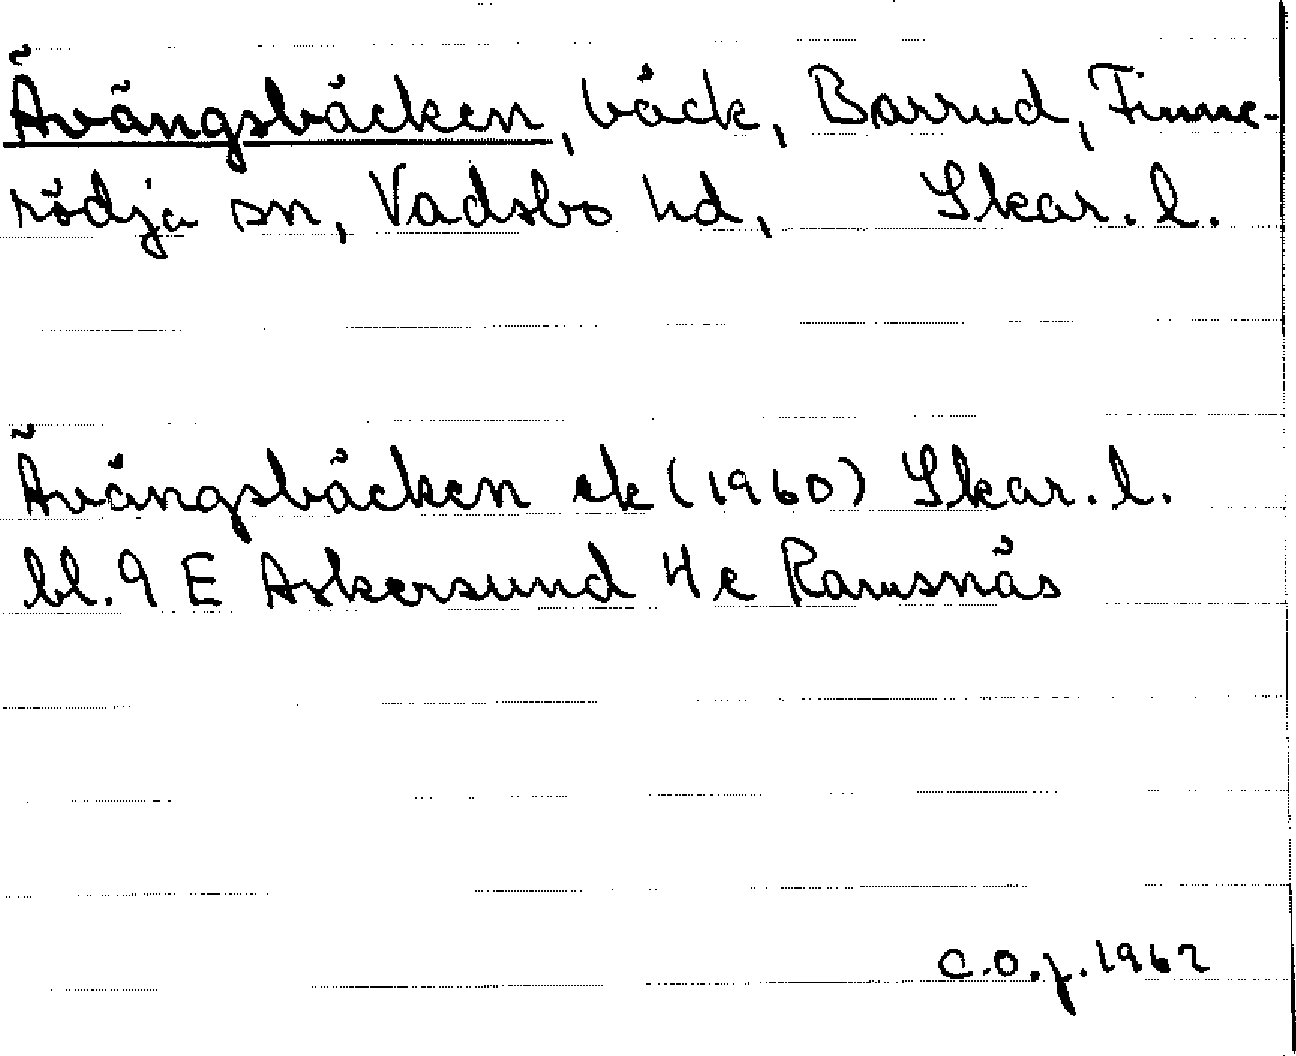 Åvängsbäcken, bäck, Barrud, Finne-
rödja sn, Vadsbo hd, Skar. l.
Åvängsbäcken ek (1960) Skar. l.
bl. 9 E Askersund 4c Ramsnäs
C.O.J. 1962